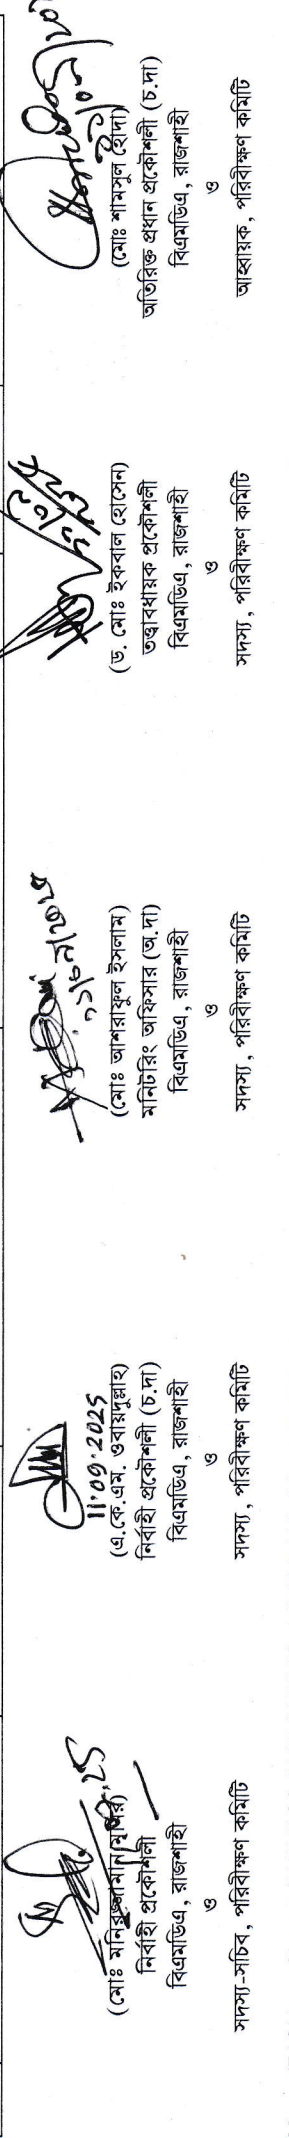 (মোঃ মনিরুজ্জামান মুন্সির)
নির্বাহী প্রকৌশলী
বিএমডিএ, রাজশাহী
ও
সদস্য-সচিব, পরিবীক্ষণ কমিটি
11.09.2025
(এ.কে.এম. ওবায়দুল্লাহ)
নির্বাহী প্রকৌশলী (চ.দা)
বিএমডিএ, রাজশাহী
ও
সদস্য, পরিবীক্ষণ কমিটি
(মোঃ আশরাফুল ইসলাম)
মনিটরিং অফিসার (অ.দা)
বিএমডিএ, রাজশাহী
ও
সদস্য, পরিবীক্ষণ কমিটি
(ড. মোঃ ইকবাল হোসেন)
তত্ত্বাবধায়ক প্রকৌশলী
বিএমডিএ, রাজশাহী
ও
সদস্য, পরিবীক্ষণ কমিটি
(মোঃ শামসুল হোদা)
অতিরিক্ত প্রধান প্রকৌশলী (চ.দা)
বিএমডিএ, রাজশাহী
ও
আহবায়ক, পরিবীক্ষণ কমিটি